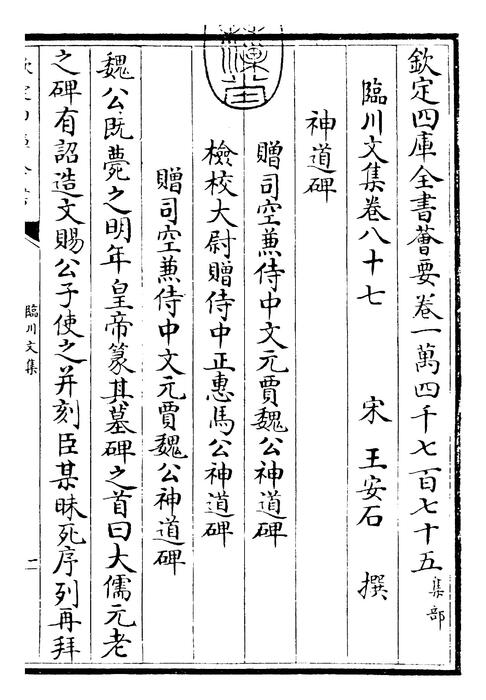 欽定四庫全書薈要卷一萬四千七百七十五集部
臨川文集卷八十七　宋　王安石　撰
神道碑
贈司空兼侍中文元賈魏公神道碑
檢校大尉贈侍中正惠馬公神道碑
贈司空兼侍中文元賈魏公神道碑
魏公既薨之明年皇帝篆其墓碑之首曰大儒元老
之碑有詔造文賜公子使之并刻臣某昧死序列再拜
臨川文集
二